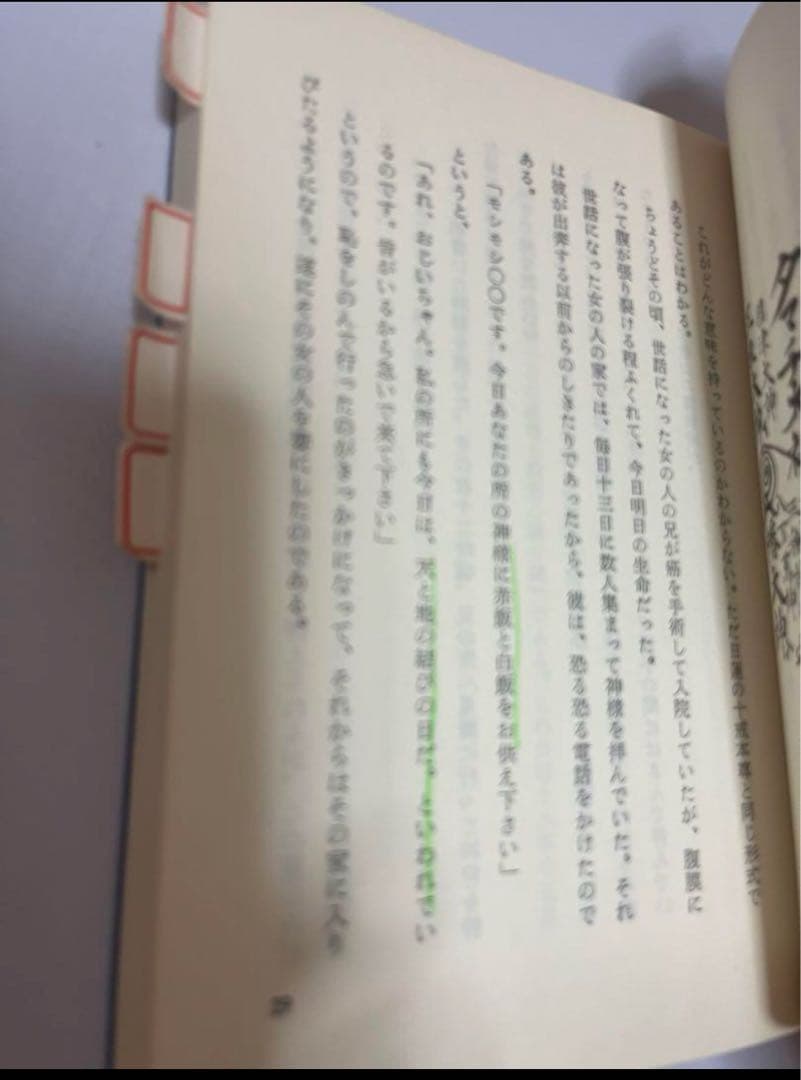 これがどんな意味を持っているのかわからない。ただ日蓮の十戒本尊と同じ形式で
あることはわかる。
ちょうどその頃、世話になった女の人の兄が癌を手術して入院していたが、腹膜に
なって腹が張り裂ける程ふくれて、今日明日の生命だった。
世話になった女の人の家では、毎日十三日に数人集まって神様を拝んでいた。それ
は彼が出奔する以前からのしきたりであったから、彼は、恐る恐る電話をかけたので
ある。
「モシモシ〇〇です。今日あなたの所の神様に赤飯と白飯をお供え下さい」
というと、
「あれ、おじいちゃん。私の所にも今日は、天と地の結びの日だ、といわれてい
るのです。皆がいるから急いで来て下さい」
というので、恥をしのんで行ったのがきっかけになって、それからはその家に入り
びたるようになり、遂にその女の人を妻にしたのである。